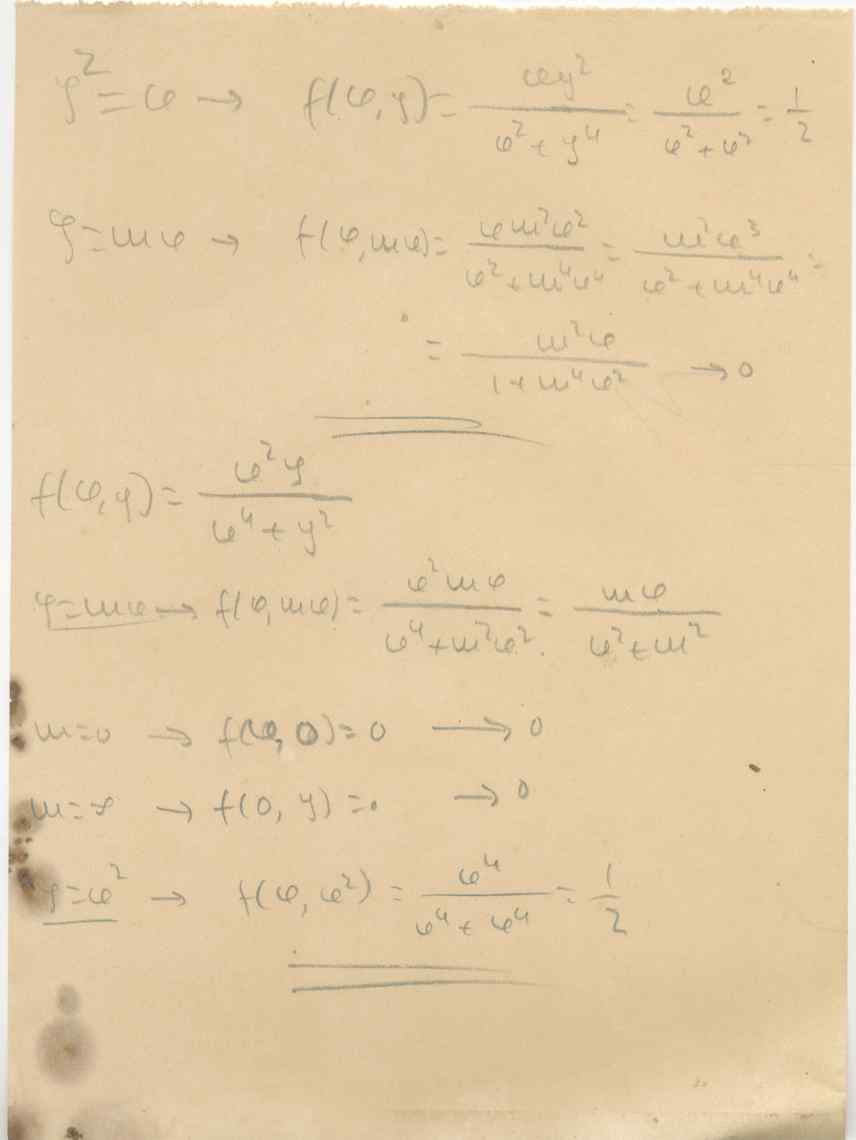 y² = x → f(x, y) = xy² / (x² + y⁴) = x² / (x² + x²) = 1/2
y = mx → f(x, mx) = x m² x² / (x² + m⁴x⁴) = m²x³ / (x² + m⁴x⁴) =
= m²x / (1 + m⁴x²) → 0
f(x, y) = x²y / (x⁴ + y²)
y = mx → f(x, mx) = x² m x / (x⁴ + m²x²) = mx / (x² + m²)
m = 0 → f(x, 0) = 0 → 0
m = ∞ → f(0, y) = 0 → 0
y = x² → f(x, x²) = x⁴ / (x⁴ + x⁴) = 1/2